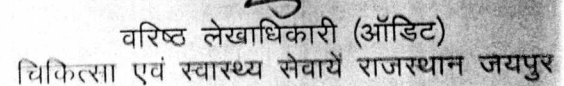 वरिष्ठ लेखाधिकारी (ऑडिट)
चिकित्सा एवं स्वास्थ्य सेवायें राजस्थान जयपुर